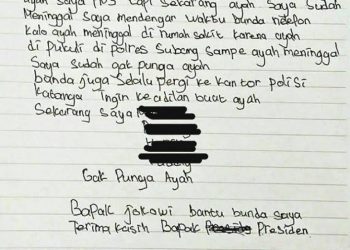 ayah saya PNS tapi sekarang ayah saya sudah
Meninggal saya mendengar waktu bunda nelefon
kalo ayah meninggal di rumah sakit karena ayah
di Pukuli di Polres Subang sampe ayah meninggal
Saya sudah gak punya ayah
banda juga Selalu pergi ke kantor poliSi
katanya Ingin keadilan buat ayah
Sekarang Saya
Gak Punga Ayah
Bapak jokowi bantu bunda saya
Terima kasih Bapak Presiden